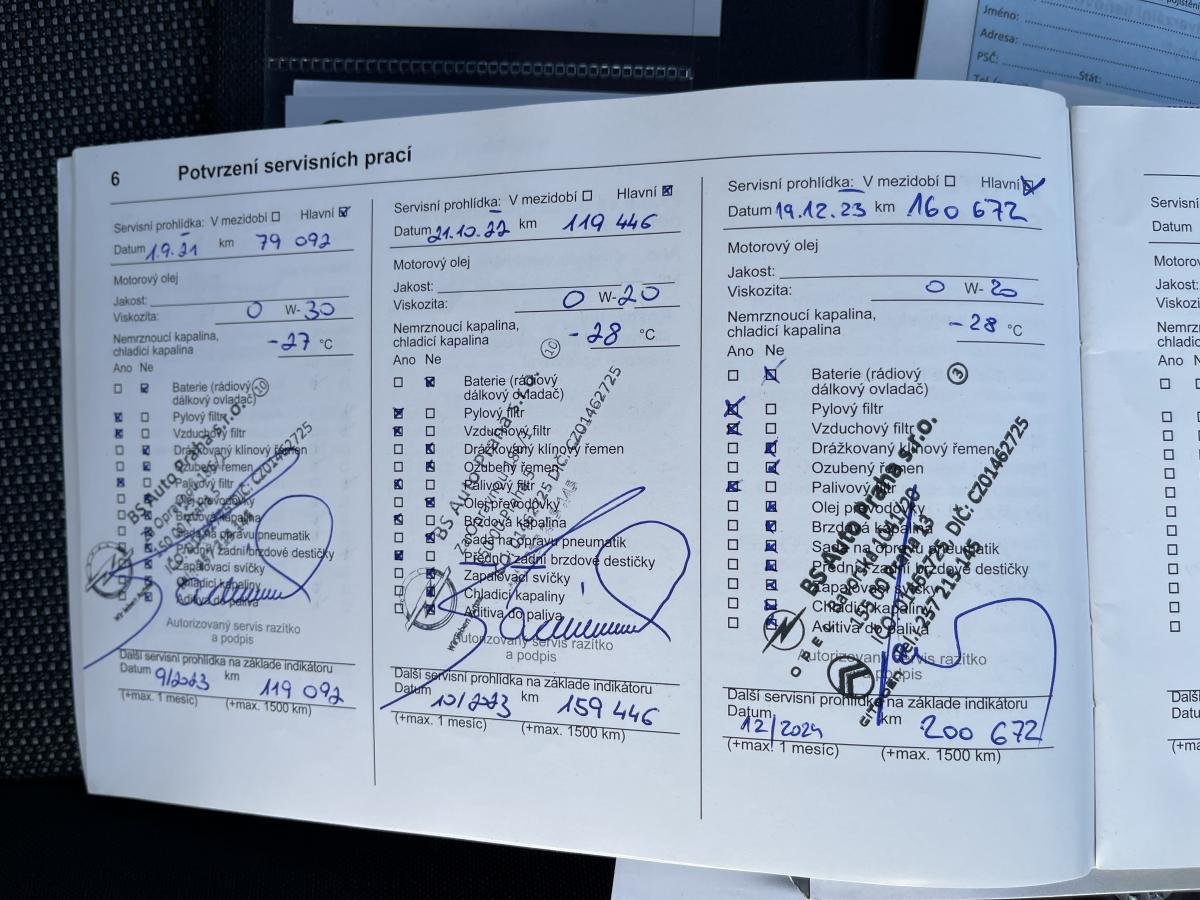 pojištění
Jméno:
Adresa:
PSČ:
Stát:
6
Potvrzení servisních prací
Servisní prohlídka: V mezidobí Hlavní
Datum 1.9.21 km 79 092
Motorový olej
Jakost:
Viskozita: 0 W-30
Nemrznoucí kapalina,
chladicí kapalina -27 °C
Ano Ne
Baterie (rádiový
dálkový ovladač) 10
Pylový filtr
Vzduchový filtr
Drážkovaný klínový řemen
Ozubený řemen
Palivový filtr
Olej převodovky
Brzdová kapalina
Sada na opravu pneumatik
Přední/zadní brzdové destičky
Zapalovací svíčky
Chladicí kapaliny
Aditiva do paliva
BS Auto Praha s.r.o.
DIČ: CZ01462725
Autorizovaný servis razítko
a podpis
Další servisní prohlídka na základě indikátoru
Datum 9/2023 km 119 092
(+max. 1 mesíc) (+max. 1500 km)
Servisní prohlídka: V mezidobí Hlavní
Datum 21.10.22 km 119 446
Motorový olej
Jakost:
Viskozita: 0 W-20
Nemrznoucí kapalina,
chladicí kapalina -28 °C
Ano Ne 10
Baterie (rádiový
dálkový ovladač)
Pylový filtr
Vzduchový filtr
Drážkovaný klínový řemen
Ozubený řemen
Palivový filtr
Olej převodovky
Brzdová kapalina
Sada na opravu pneumatik
Přední/zadní brzdové destičky
Zapalovací svíčky
Chladicí kapaliny
Aditiva do paliva
BS Auto Praha s.r.o.
DIČ: CZ01462725
Autorizovaný servis razítko
a podpis
Další servisní prohlídka na základě indikátoru
Datum 10/2023 km 159 446
(+max. 1 mesíc) (+max. 1500 km)
Servisní prohlídka: V mezidobí Hlavní
Datum 19.12.23 km 160 672
Motorový olej
Jakost:
Viskozita: 0 W-20
Nemrznoucí kapalina,
chladicí kapalina -28 °C
Ano Ne
Baterie (rádiový
dálkový ovladač) 3
Pylový filtr
Vzduchový filtr
Drážkovaný klínový řemen
Ozubený řemen
Palivový filtr
Olej převodovky
Brzdová kapalina
Sada na opravu pneumatik
Přední/zadní brzdové destičky
Zapalovací svíčky
Chladicí kapaliny
Aditiva do paliva
BS Auto Praha s.r.o.
155 00 Praha 13
IČO: 01462725, DIČ: CZ01462725
Tel.: 257 215 445
OPEL
CITROEN
Autorizovaný servis razítko
podpis
Další servisní prohlídka na základě indikátoru
Datum 12/2024 km 200 672
(+max. 1 mesíc) (+max. 1500 km)
Servisní
Datum
Jakost:
Ano